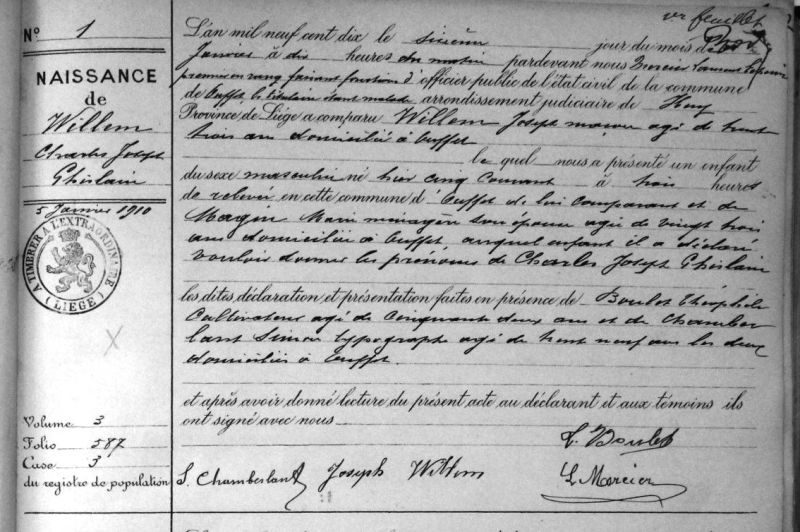 Nº 1
NAISSANCE
de
Willem
Charles Joseph
Ghislain
5 Janvier 1910
A TIMBRER A L'EXTRAORDINAIRE
(LIÈGE)
Volume 3
Folio 587
Case 3
du registre de population
1er feuillet
L'an mil neuf cent dix le sixième jour du mois de
Janvier à dix heures du matin pardevant nous Mercier Laurent Echevin
premier rang faisant fonction d'officier public de l'état civil de la commune
de Ouffet le titulaire étant malade arrondissement judiciaire de Huy
Province de Liége a comparu Willem Joseph maçon agé de trente
trois ans domicilié à Ouffet
le quel nous a présenté un enfant
du sexe masculin né hier cinq courant à trois heures
de relevée en cette commune d'Ouffet de lui comparant et de
Magin Marie ménagère son épouse agée de vingt trois
ans domiciliée à Ouffet, auquel enfant il a déclaré
vouloir donner les prénoms de Charles Joseph Ghislain
les dites déclaration et présentation faites en présence de Boulet Théophile
Cultivateur agé de Cinquante deux ans et de Chamber
lant Simon typographe agé de trente neuf ans les deux
domiciliés à Ouffet.
et après avoir donné lecture du présent acte au déclarant et aux témoins ils
ont signé avec nous
T. Boulet
S. Chamberlant Joseph Willem L. Mercier